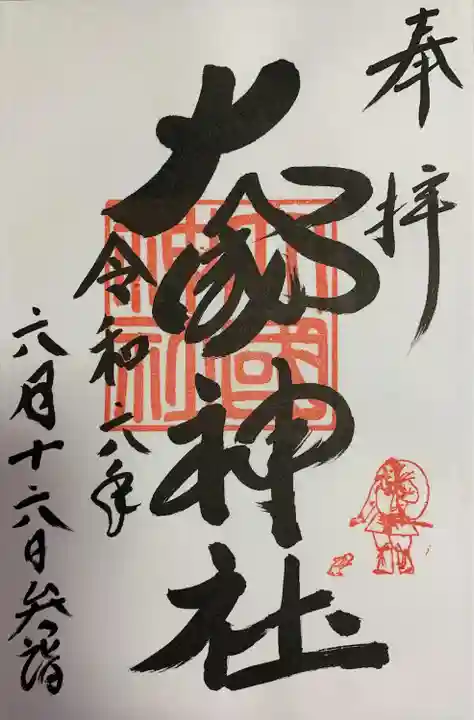 奉拝
大國神社
令和六年
六月十六日参詣